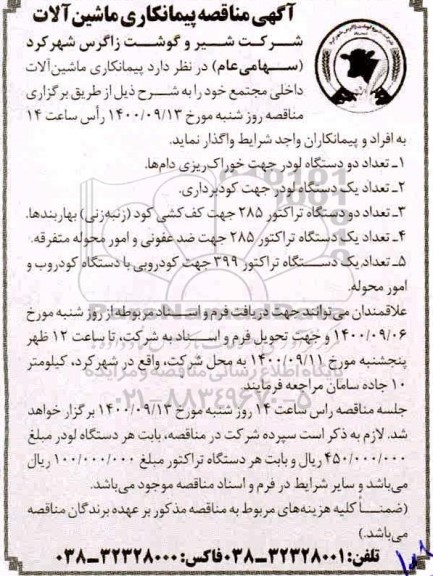 آگهی مناقصه پیمانکاری ماشین آلات
شرکت شیر و گوشت زاگرس شهرکرد
(سهامی عام) در نظر دارد پیمانکاری ماشین آلات
داخلی مجتمع خود را به شرح ذیل از طریق برگزاری
مناقصه روز شنبه مورخ ۱۴۰۰/۰۹/۱۳ رأس ساعت ۱۴
به افراد و پیمانکاران واجد شرایط واگذار نماید.
۱ـ تعداد دو دستگاه لودر جهت خوراک‌ریزی دام‌ها.
۲ـ تعداد یک دستگاه لودر جهت کودبرداری.
۳ـ تعداد دو دستگاه تراکتور ۲۸۵ جهت کف‌کشی کود (زنبه‌زنی) بهاربندها.
۴ـ تعداد یک دستگاه تراکتور ۲۸۵ جهت ضدعفونی و امور محوله متفرقه.
۵ـ تعداد یک دستگاه تراکتور ۳۹۹ جهت کودروبی با دستگاه کودروب و
امور محوله.
علاقمندان می‌توانند جهت دریافت فرم و اسناد مربوطه از روز شنبه مورخ
۱۴۰۰/۰۹/۰۶ و جهت تحویل فرم و اسناد به شرکت، تا ساعت ۱۲ ظهر
پنجشنبه مورخ ۱۴۰۰/۰۹/۱۱ به محل شرکت، واقع در شهرکرد، کیلومتر
۱۰ جاده سامان مراجعه فرمایند.
جلسه مناقصه راس ساعت ۱۴ روز شنبه مورخ ۱۴۰۰/۰۹/۱۳ برگزار خواهد
شد. لازم به ذکر است سپرده شرکت در مناقصه، بابت هر دستگاه لودر مبلغ
۴۵۰/۰۰۰/۰۰۰ ریال و بابت هر دستگاه تراکتور مبلغ ۱۰۰/۰۰۰/۰۰۰ ریال
می‌باشد و سایر شرایط در فرم و اسناد مناقصه موجود می‌باشد.
(ضمناً کلیه هزینه‌های مربوط به مناقصه مذکور بر عهده برندگان مناقصه
می‌باشد.)
تلفن: ۳۲۳۲۸۰۰۱-۰۳۸ فاکس: ۳۲۳۲۸۰۰۰-۰۳۸
پایگاه اطلاع رسانی مناقصه و مزایده
۰۲۱-۸۸۳۴۹۶۷۰-۵